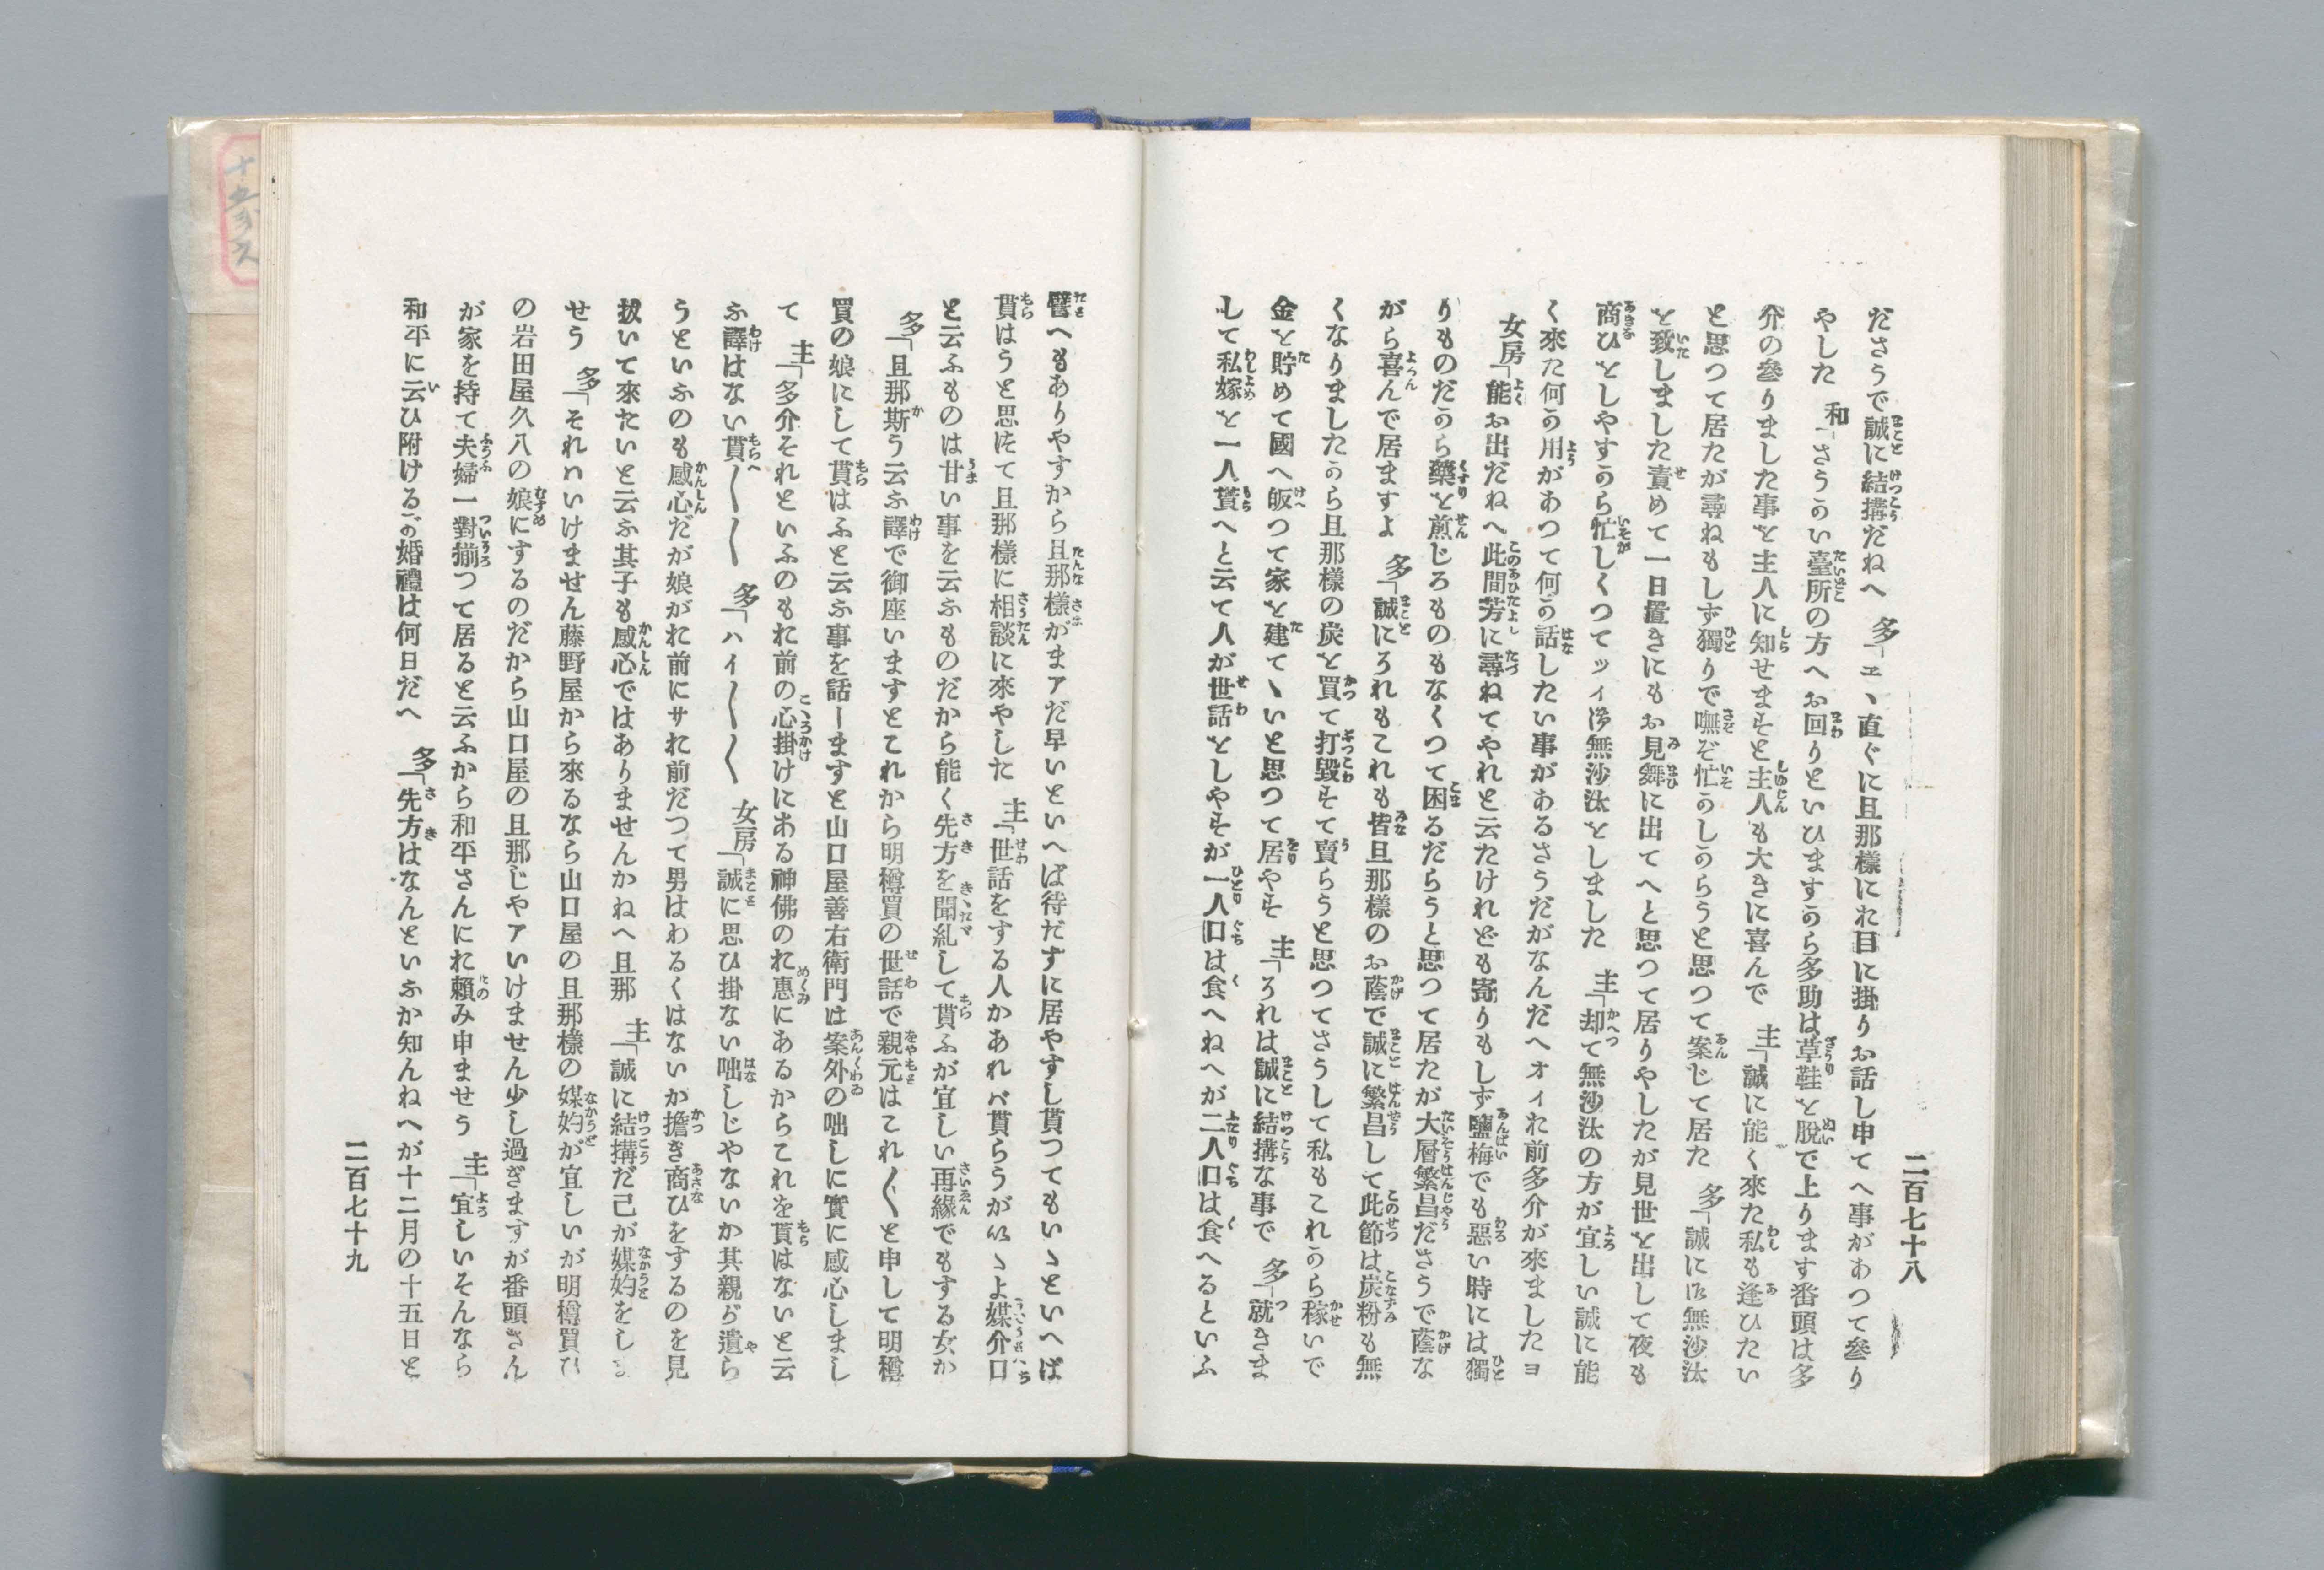 二百七十八
ださうで誠に結搆だねへ 多「エヽ直ぐに且那樣にれ目に掛りお話し申てへ事があつて參り
やした 和「さうかい臺所の方へお回りといひますから多助は草鞋と脱で上ります番頭は多
介の參りました事と主人に知せますと主人も大きに喜んで 主「誠に能く來た私も逢ひたい
と思つて居たが尋ねもしず獨りで嘸ぞ忙かしからうと思つて案じて居た 多「誠に御無沙汰
と致しました責めて一日置きにもお見舞に出てへと思つて居りやしたが見世と出して夜も
商ひとしやすから忙しくつてツイ御無沙汰としました 主「却て無沙汰の方が宜しい誠に能
く來た何か用があつて何か話したい事があるさうだがなんだへオイれ前多介が來ましたヨ
女房「能お出だねへ此間芳に尋ねてやれと云たけれども寄りもしず鹽梅でも惡い時には獨
りものだから藥と煎じるものもなくつて困るだらうと思つて居たが大層繁昌ださうで蔭な
がら喜んで居ますよ 多「誠にそれもこれも皆旦那樣のお蔭で誠に繁昌して此節は炭粉も無
くなりましたから且那樣の炭と買て打毀して賣らうと思つてさうして私もこれから稼いで
金と貯めて國へ皈つて家と建てヽいと思つて居やす 主「それは誠に結搆な事で 多「就きま
して私嫁と一人貰へと云て人が世話としやすが一人口は食へねへが二人口は食へるといふ
譬へもありやすから且那樣がまアだ早いといへば待だずに居やすし貰つてもいゝといへば
貰はうと思ほて且那樣に相談に來やした 主「世話をする人かあれバ貰らうがいゝよ媒介口
と云ふものは甘い事を云ふものだから能く先方を聞糺して貰ふが宜しい再緣でもする女か
多「且那斯う云ふ譯で御座いますとこれから明樽買の世話で親元はこれ〳〵と申して明樽
買の娘にして貰はふと云ふ事を話しますと山口屋善右衛門は案外の咄しに實に感心しまし
て 主「多介それといふのもれ前の心掛けにある神佛のれ惠にあるからこれを貰はないと云
ふ譯はない貰へ〳〵〳〵 多「ハイ〳〵〳〵 女房「誠に思ひ掛ない咄しじやないか其親が遣ら
うといふのも感心だが娘がれ前にサれ前だつて男はわるくはないか擔き商ひをするのを見
拔いて來たいと云ふ其子も感心ではありませんかねへ且那 主「誠に結搆だ己が媒妁をしま
せう 多「それハいけません藤野屋から來るなら山口屋の且那樣の媒妁が宜しいが明樽買ひ
の岩田屋久八の娘にするのだから山口屋の且那じやアいけません少し過ぎますが番頭さん
が家を持て夫婦一對揃つて居ると云ふから和平さんにれ賴み申ませう 主「宜しいそんなら
和平に云ひ附けるが婚禮は何日だへ 多「先方はなんといふか知んねへが十二月の十五日と
二百七十九